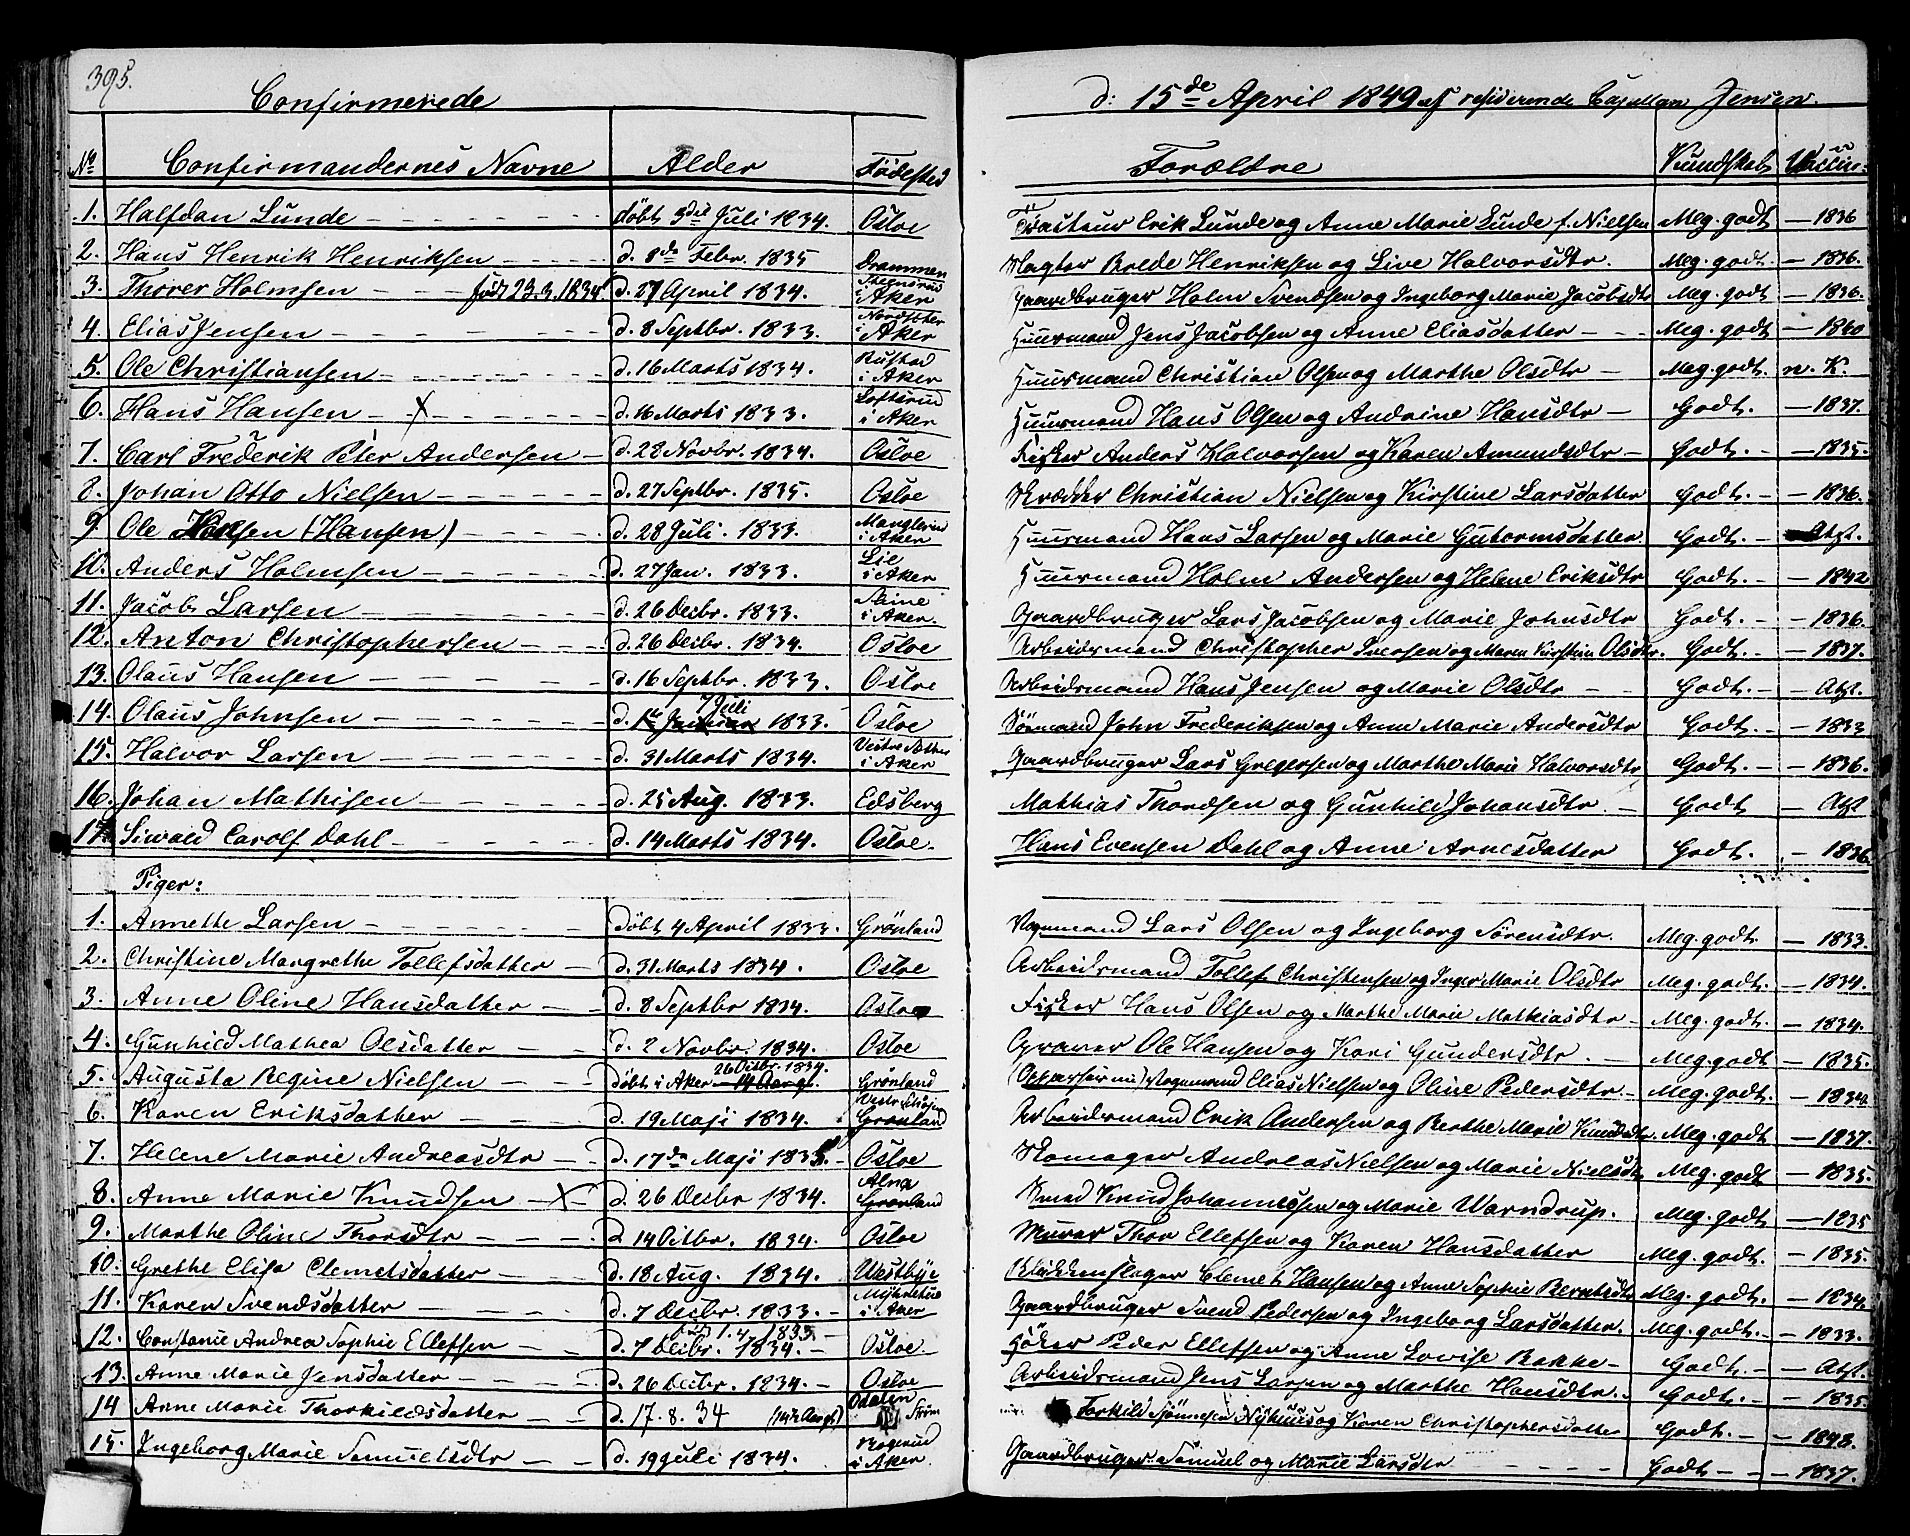 395.
Confirmerede d: 15de April 1849 af residerende Capellan Jensen.
No Confirmandernes Navne Alder Fødested Forældre Kundskab Vaccin:
1. Halfdan Lunde døbt 3die Juli 1834. Osloe Erik Lunde og Anne Marie Lunde f. Nielsen Meg. godt 1836
2. Hans Henrik Henriksen d. 8de Febr. 1835 Drammen Slagter Brede Henriksen og Live Halvorsdtr. Meg. godt 1836.
3. Thorer Holmsen født 23.3.1834 d. 27 April 1834. i Aker Gaardbruger Holm Svendsen og Ingeborg Marie Jacobsdtr Meg. godt 1836.
4. Elias Jensen d. 8 Septbr. 1833. Nordseter i Aker Huusmand Jens Jacobsen og Anne Eliasdatter Meg. godt 1840
5. Ole Christiansen d. 16 Marts 1834. Rustad i Aker Huusmand Christian Olsen og Marthe Olsdtr Meg. godt. n. K.
6. Hans Hansen X d. 16 Marts 1833. Loftsrud i Aker Huusmand Hans Olsen og Andrine Hansdtr Godt. 1837.
7. Carl Frederik Peter Andersen d. 28 Novbr. 1834. Osloe Fisker Anders Halvorsen og Karen Amundsdtr Godt. 1835.
8. Johan Otto Nielsen d. 27 Septbr. 1835. Osloe Skrædder Christian Nielsen og Kirstine Larsdatter Godt 1836.
9. Ole (Hansen) d. 28 Juli. 1833. Manglerud i Aker Huusmand Hans Larsen og Marie Gutormsdatter Godt. Atst.
10. Anders Holmsen d. 27 Jan. 1833. Lie i Aker Huusmand Holm Andersen og Helene Eriksdtr Godt. 1842
11. Jacob Larsen d. 26 Decbr. 1833. i Aker. Gaardbruger Lars Jacobsen og Marie Johnsdtr Godt. 1836.
12. Anton Christophersen d. 26 Decbr. 1834. Osloe Arbeidsmand Christopher Iversen og Maren Kirstine Olsdtr. Godt. 1837.
13. Olaus Hansen d. 16 Septbr. 1833. Osloe Arbeidsmand Hans Jensen og Marie Olsdtr Godt. Atst.
14. Olaus Johnsen d. 7 Juli 1833. Osloe Sømand John Frederiksen og Anne Marie Andersdtr Godt. 1833
15. Halvor Larsen d. 31 Marts 1834. i Aker Gaardbruger Lars Gregersen og Marthe Marie Halvorsdtr Godt. 1836.
16. Johan Mathisen d. 25 Aug. 1833. Edsberg Mathias Thordsen og Gunhild Johansdtr. Godt Atst.
17. Siwald Carolf Dahl d. 14 Marts 1834. Osloe. Hans Evensen Dahl og Anne Arnesdatter Godt. 1836.
Piger:
1. Annethe Larsen døbt 4 April 1833. Grønland Vognmand Lars Olsen og Ingeborg Sørensdtr. Meg. godt. 1833.
2. Christine Margrethe Tollefsdatter d. 31 Marts 1834. Osloe Arbeidsmand Tollef Christensen og Inger Marie Olsdtr Meg. godt. 1834.
3. Anne Oline Hansdatter d. 8 Septbr 1834. Osloe Fisker Hans Olsen og Marthe Marie Mathiasdtr Meg. godt. 1834.
4. Gunhild Mathea Olsdatter d. 2 Novbr. 1834. Osloe Graver Ole Hansen og Kari Gundersdtr. Meg. godt 1835.
5. Augusta Regine Nielsen døbt i Aker 26 Octbr. 1834. Grønland Vognmand Elias Nielsen og Oline Pedersdtr. Meg. godt. 1834
6. Karen Eriksdatter d. 19 Maji 1834. Grønland Arbeidsmand Erik Andersen og Berthe Marie Knudsdtr. Meg. godt 1837.
7. Helene Marie Andreasdtr d. 17de Maji 1835. Osloe Skomager Andreas Nielsen og Marie Nielsdtr Meg. godt 1835.
8. Anne Marie Knudsen X d. 26 Decbr 1834. Alna Grønland Smed Knud Johannessen og Marie Warndrup. Meg. godt 1835
9. Marthe Oline Thorsdtr d. 14 Octbr. 1834. Osloe Murer Thor Ellefsen og Karen Hansdatter Meg. godt. 1835.
10. Grethe Elisa Clemetsdatter d. 18 Aug. 1834. Westbye Blikkenslager Clemet Hansen og Anne Sophie Berntsdtr Meg. godt. 1834.
11. Karen Svendsdatter d. 7 Decbr. 1833. i Aker Gaardbruger Svend Pedersen og Ingeborg Larsdatter. Meg. godt. 1833.
12. Constanie Andrea Sophie Ellefsen d. 7 Decbr. 1834. Osloe Høker Peder Ellefsen og Anne Lovise Bakke Godt. Atst.
13. Anne Marie Jensdatter d. 26 Decbr. 1834. Osloe Arbeidsmand Jens Larsen og Marthe Hansdtr. Godt. 1835.
14 Anne Marie Thorkildsdatter d. 17. 8. 34 Odalen Strøm Torkild Nyhuus og Karen Christophersdatter Godt. 1848.
15. Ingeborg Marie Samuelsdtr d. 19 Juli 1834. i Aker. Gaardbruger Samuel og Marie Larsdtr Godt 1837.